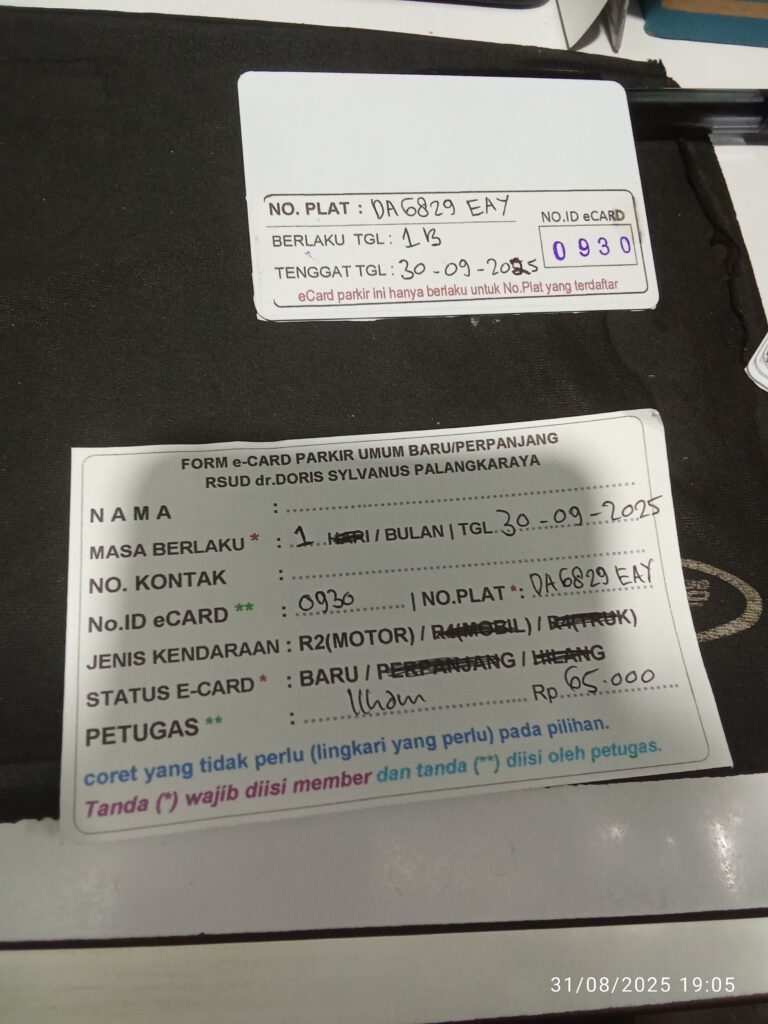 NO. PLAT : DA6829 EAY
BERLAKU TGL : 1 B
TENGGAT TGL : 30-09-2025
NO.ID eCARD
0930
eCard parkir ini hanya berlaku untuk No.Plat yang terdaftar
FORM e-CARD PARKIR UMUM BARU/PERPANJANG
RSUD dr.DORIS SYLVANUS PALANGKARAYA
NAMA :
MASA BERLAKU * : 1 HARI / BULAN | TGL. 30-09-2025
NO. KONTAK :
No.ID eCARD ** : 0930 | NO.PLAT * : DA6829 EAY
JENIS KENDARAAN : R2(MOTOR) / R4(MOBIL) / R4(TRUK)
STATUS E-CARD * : BARU / PERPANJANG / HILANG
PETUGAS ** : Ilham Rp. 65.000
coret yang tidak perlu (lingkari yang perlu) pada pilihan.
Tanda (*) wajib diisi member dan tanda (**) diisi oleh petugas.
31/08/2025 19:05